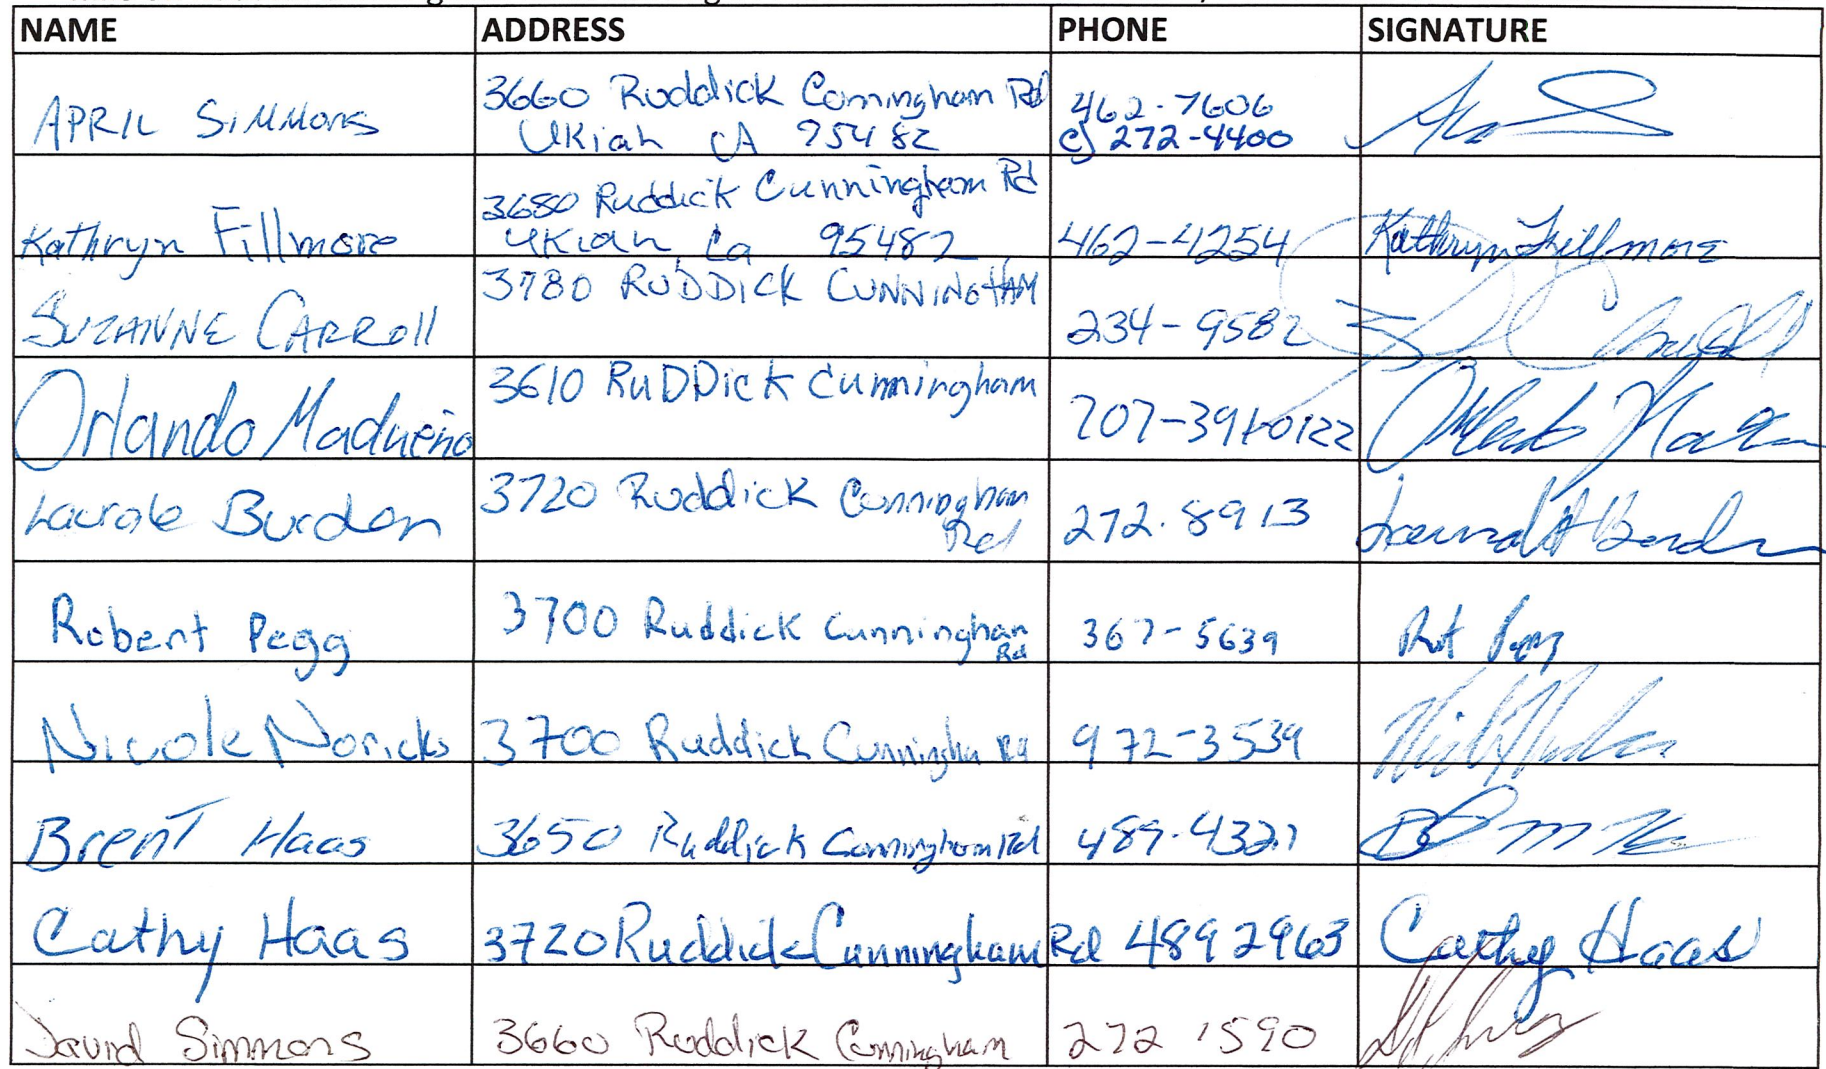 NAME ADDRESS PHONE SIGNATURE
APRIL SIMMONS 3660 Ruddick Cunningham Rd 462-7606
Ukiah CA 95482 c) 272-4400
Kathryn Fillmore 3680 Ruddick Cunningham Rd 462-4254 Kathryn Fillmore
Ukiah, Ca 95482
SUZANNE CARROLL 3780 RUDDICK CUNNINGHAM 234-9582
Orlando Madueño 3610 RUDDick Cunningham 707-391-0122
Burden 3720 Ruddick Cunningham 272.8913
Rd
Robert Pegg 3700 Ruddick Cunninghan 367-5639
Rd
Nicole Noricks 3700 Ruddick Cunningha Rd 972-3539
Brent Haas 3650 Ruddick Cunningham Rd 489-4321
Cathy Haas 3720 Ruddick Cunningham Rd 489 2963 Cathy Haas
David Simmons 3660 Ruddick Cunningham 272 1590